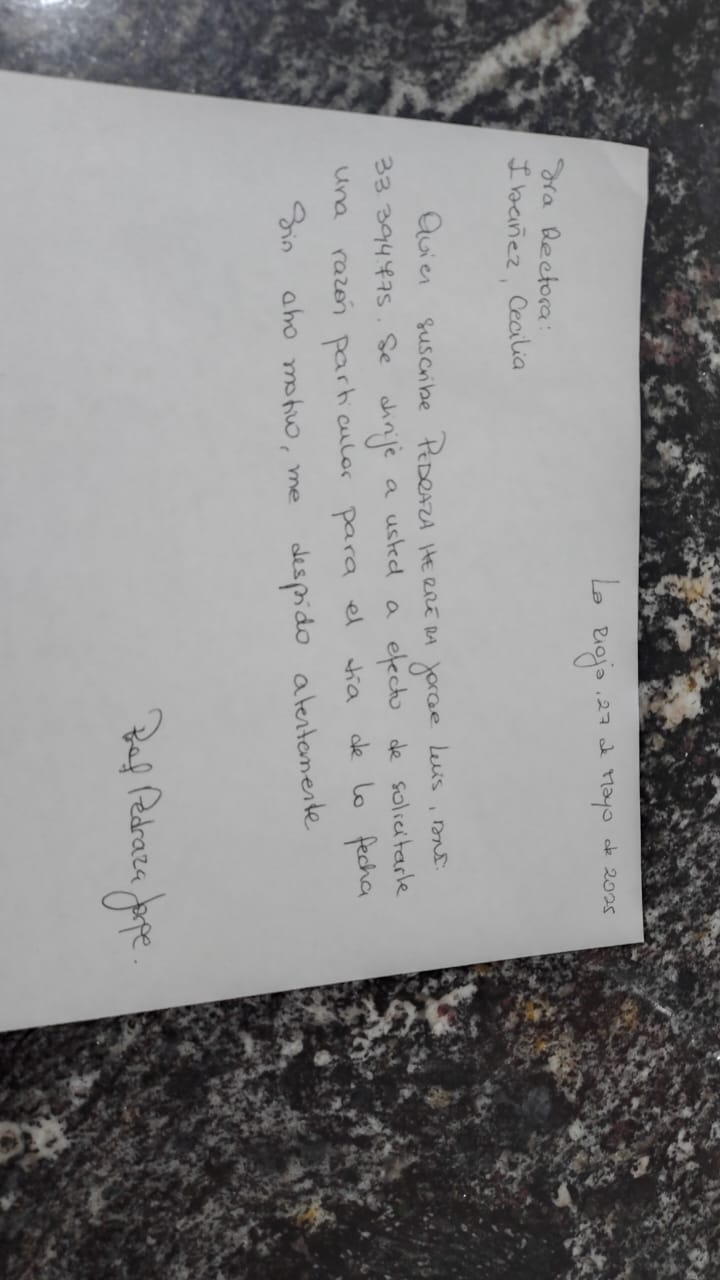 La Rioja, 27 de Mayo de 2025
Sra Rectora:
Ibañez, Cecilia
Quien suscribe PEDRAZA HERRERA Jorge Luis, DNI:
33.394.475. Se dirije a usted a efecto de solicitarle
una razón particular para el día de la fecha
Sin otro motivo, me despido atentamente
Prof Pedraza Jorge.